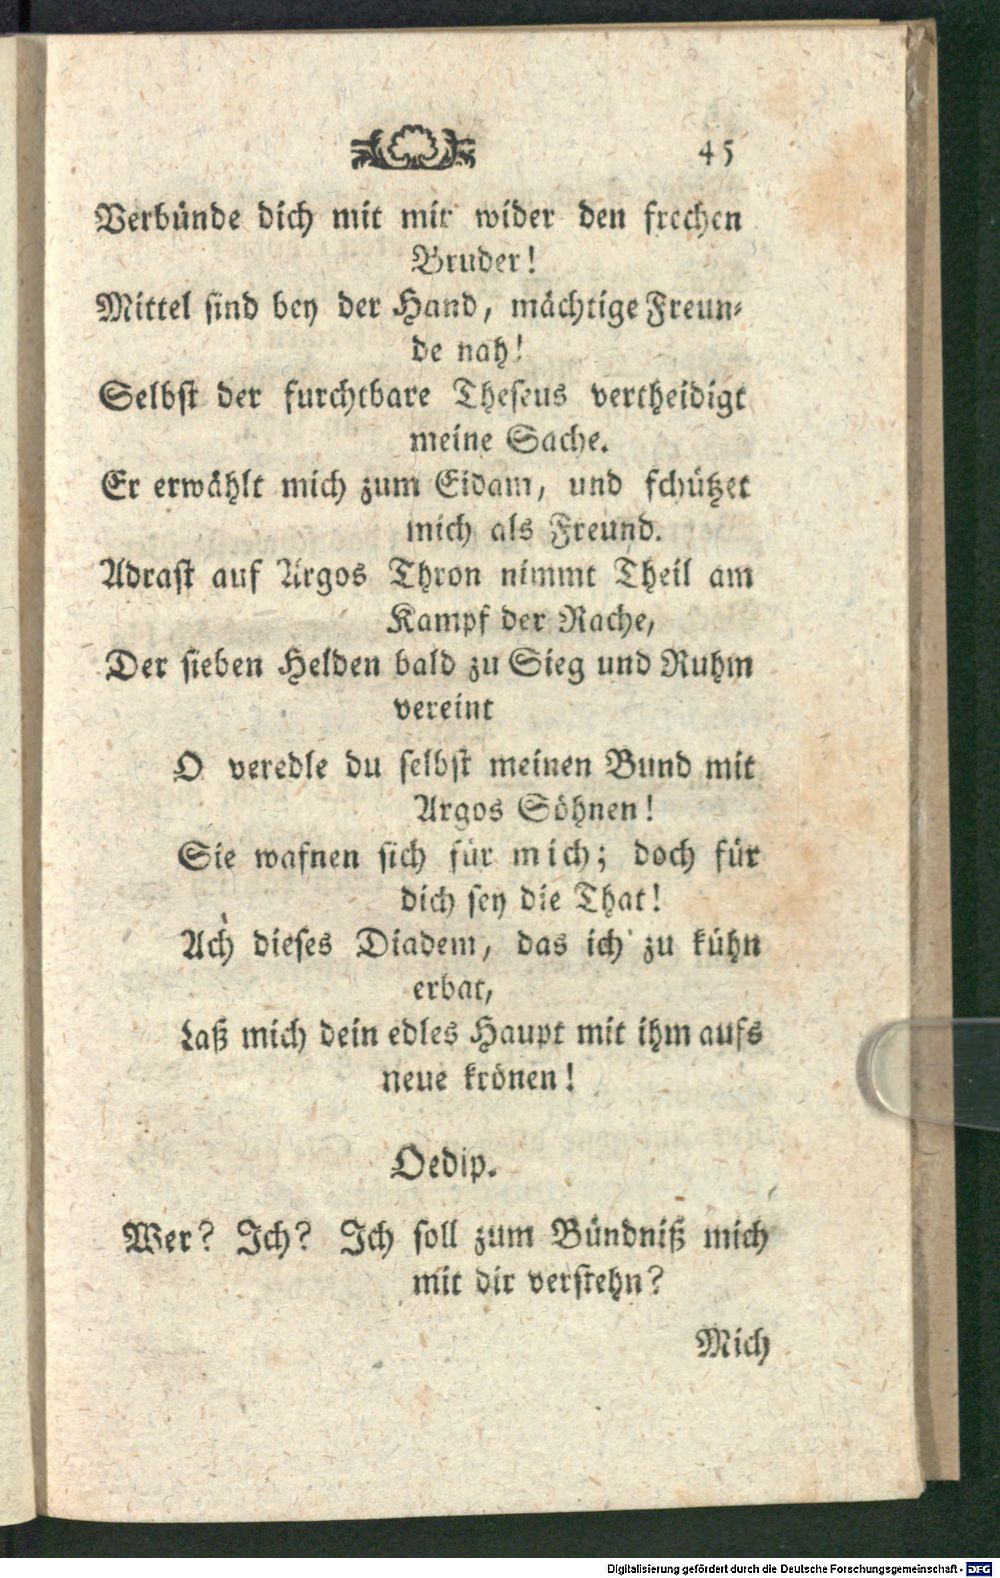 45
Verbünde dich mit mir wider den frechen
Bruder!
Mittel sind bey der Hand, mächtige Freun-
de nah!
Selbst der furchtbare Theseus vertheidigt
meine Sache.
Er erwählt mich zum Eidam, und schützet
mich als Freund.
Adrast auf Argos Thron nimmt Theil am
Kampf der Rache,
Der sieben Helden bald zu Sieg und Ruhm
vereint
O veredle du selbst meinen Bund mit
Argos Söhnen!
Sie wafnen sich für mich; doch für
dich sey die That!
Ach dieses Diadem, das ich zu kühn
erbat,
Laß mich dein edles Haupt mit ihm aufs
neue krönen!
Oedip.
Wer? Ich? Ich soll zum Bündniß mich
mit dir verstehn?
Mich
Digitalisierung gefördert durch die Deutsche Forschungsgemeinschaft - DFG